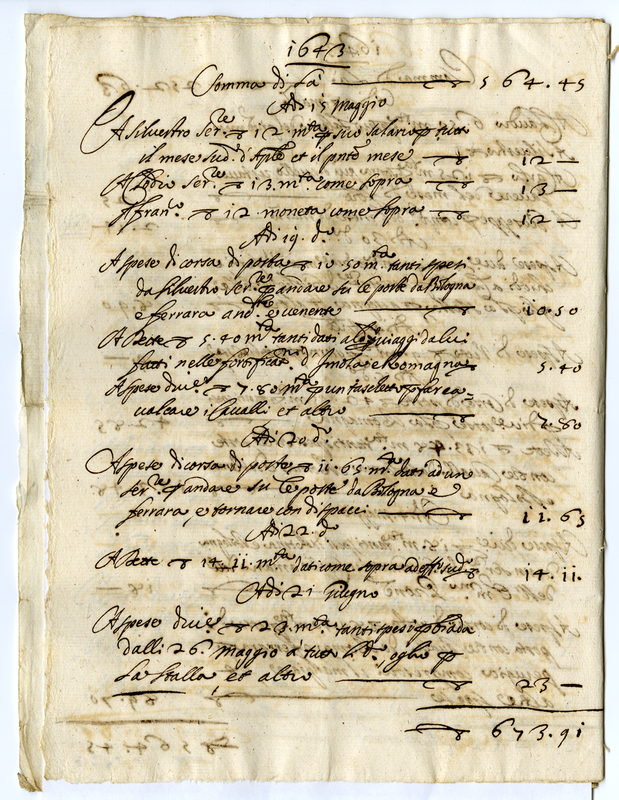 1643
Somma di là 564.45
Adi 15 maggio
A Silvestro Ser.re 12. m.ta p suo salario p tutto
il mese sud.o et il pnte mese 12 —
A Lodio Ser.re 13. m.ta come sopra 13 —
A fran.o 12 moneta come sopra 12 —
Adi 19. d.o
A spese di corsa di posta 10.50 m.ta tanti spesi
da Silvestro Ser.re p andare su le poste da Bologna
e ferrara and.e venente 10.50
A 5.40 m.ta tanti dati viaggi da lui
fatti nelle fortificat.ni d Imola e Romagna 5.40
A spese due.e 7.80 m.ta p un p far ca=
valcare i Cavalli et altro 7.80
Adi 20. d.o
A spese di corsa di poste 11.65 m.ta dati ad un
ser.re p andare su le poste da Bologna e
ferrara, e tornare con dispacci 11.65
Adi 22. d.o
A 14.11. m.ta dati come sopra ad eff.o sud.o 14.11.
Adi 21 Giugno
A spese due.e 23. m.ta tanti spesi p biada
dalli 26 maggio a tutto li d.o, oglio p
la stalla, et altro 23 —
673.91